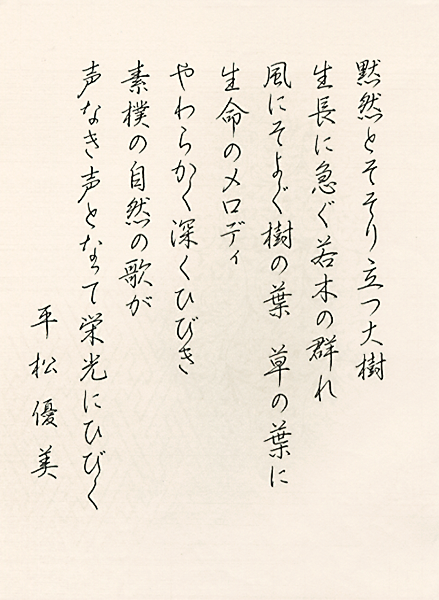 黙然とそそり立つ大樹
生長に急ぐ若木の群れ
風にそよぐ樹の葉　草の葉に
生命のメロディ
やわらかく深くひびき
素樸の自然の歌が
声なき声となって栄光にひびく
平松優美